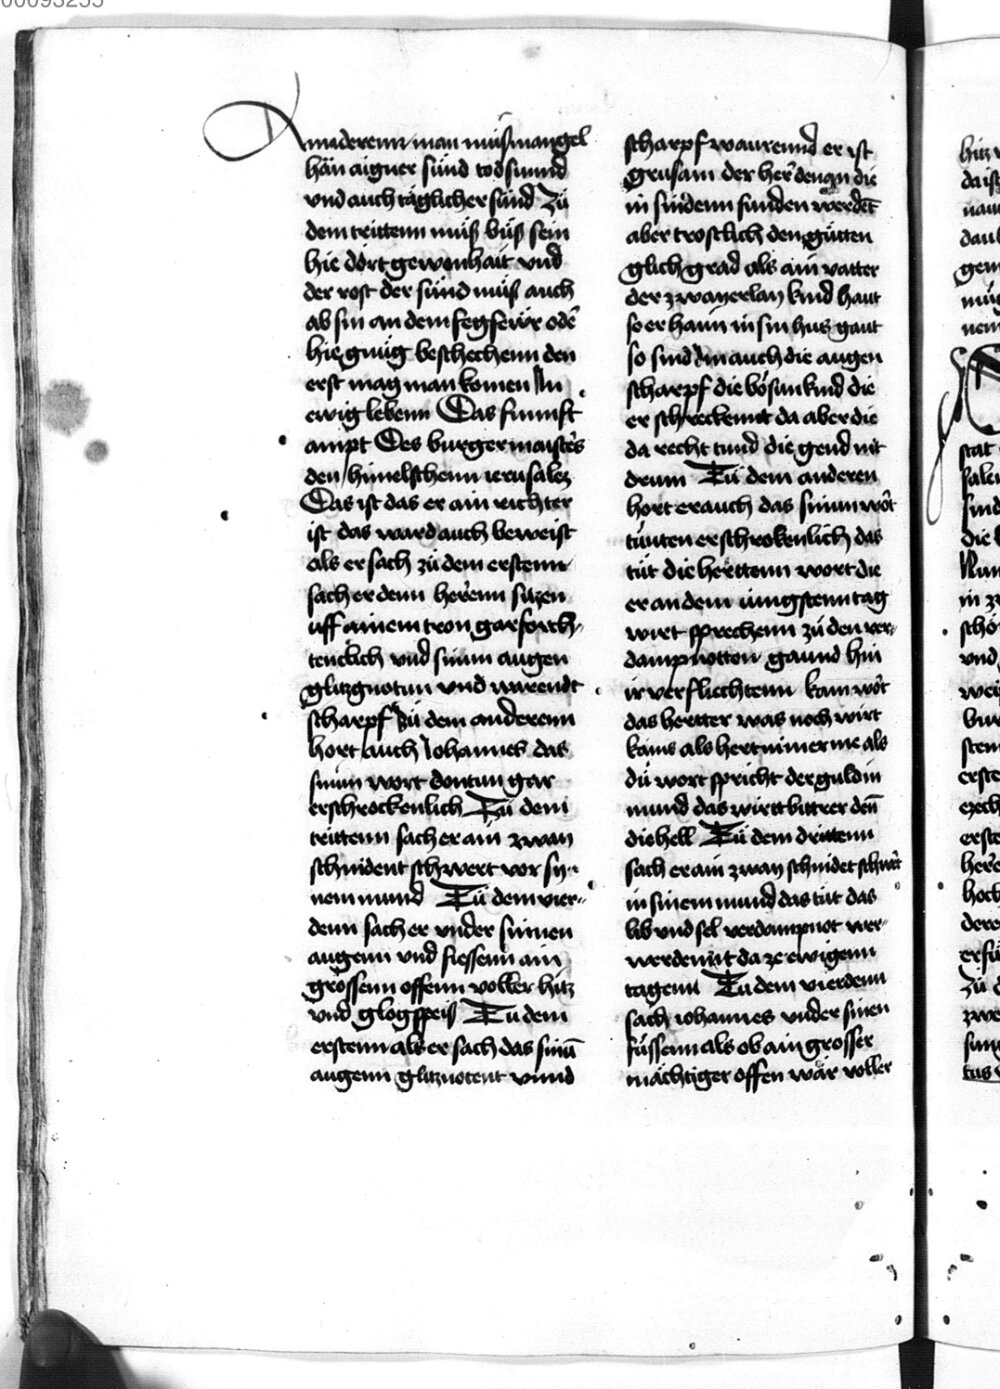 00093255
Amaderenn man mūß mangel
hān aigner sünd todsünnd
vnd auch täglicher sünd Zü
dem trittenn müß büß sein
hie dört gewonhait vnd
der rost der sünd müß auch
ab sin an dem fegfewr odē
hie gnüg beschechenn den
erst mag man komen In
ewig lebenn Das fünnft
ampt Des burgermaisters
den himelschenn ierusalez
Das ist das er ain richter
ist das ward auch beweist
als er sach zü dem erstenn
sach er denn herrenn sitzen
uff ainem tron gar forch-
tenclich vnd sinnn augen
glitzgnotun vnd warendt
scharpf Zü dem anderenn
hort auch Iohannes das
sinnn wort dontun gar
erschrockenlich Zü dem
trittenn sach er ain zway
schnident schwert vor sy-
nem mund Zü dem vier-
denn sach er vnder sinnen
augenn vnd fiessenn ain
grossenn offenn voller hitz
vnd glogspeis Zü dem
erstenn als er sach das sinnū
augenn glitznotent vnnd
scharpf waurennd er ist
grusam der her denen die
in sündenn funden werdēt
aber trostlich den gütten
glich grad als ain vatter
der zwayerlay kind haut
so er haim in sin hus gaut
so sind im auch die augen
scharpf die bösun kind die
er schreckennt da aber die
da recht tund die gend nit
drum Zü dem anderen
hort er auch das sinnn wōrt
tünten erschrokenlich das
tüt die herttenn wort die
er an dem iungstenn tag
wirt sprechenn zü den ver-
dampnotton gannd hin
ir verfliechtenn kain wōrt
das hertter was noch wirt
kains als hert nimer me als
dü wort spricht der guldin
mund das wirtt bittrer dēn
die hell Zü dem drittenn
sach er ain zway schnidet schwērt
in sinem mund das tüt das
lib vnd sel verdampnot wer-
werdennt da ze ewigenn
tagenn Zü dem vierdenn
sach iohannes vnder sinen
füssenn als ob ain grosser
mächtiger offen wär voller